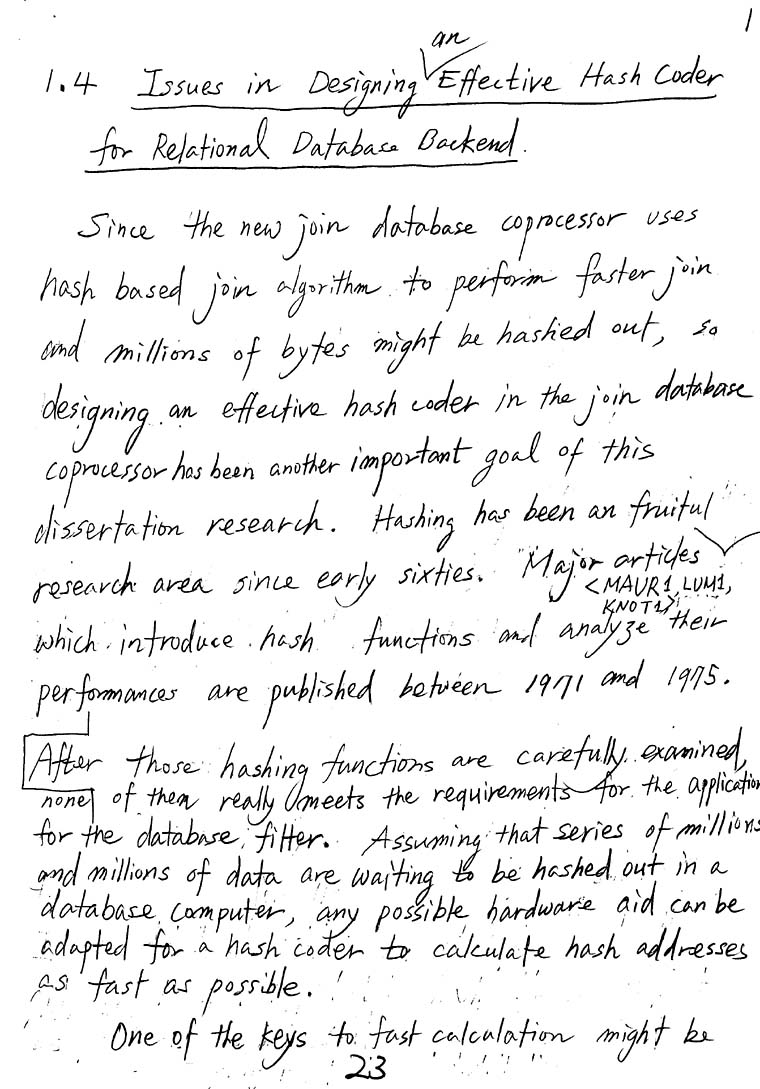 1
an
1.4 Issues in Designing Effective Hash Coder
for Relational Database Backend.
Since the new join database coprocessor uses
hash based join algorithm to perform faster join
and millions of bytes might be hashed out, so
designing an effective hash coder in the join database
coprocessor has been another important goal of this
dissertation research. Hashing has been an fruitul
research area since early sixties. Major articles
<MAUR1, LUM1,
KNOT1>
which introduce hash functions and analyze their
performances are published between 1971 and 1975.
After those hashing functions are carefully examined,
none of them really meets the requirements for the application
for the database filter. Assuming that series of millions
and millions of data are waiting to be hashed out in a
database computer, any possible hardware aid can be
adapted for a hash coder to calculate hash addresses
as fast as possible.
One of the keys to fast calculation might be
23